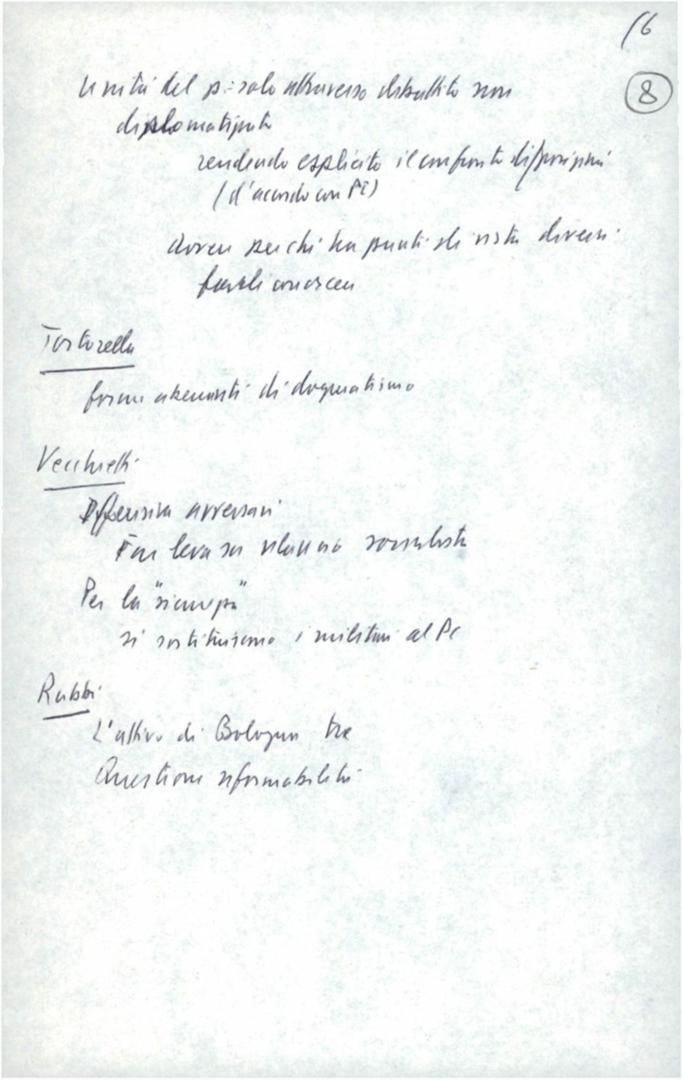 16
8
unità del p. solo attraverso dibattito non
diplomatizzato
rendendo esplicito il confronto di posizioni
(d'accordo con PI)
dovere per chi ha punti di vista diversi
farli conoscere
Tortorella
forme attenuanti di dogmatismo
Vecchietti
Offensiva avversari
Far leva su socialista
Per la "
si sostituiscono i militari al PC
Rubbi
L'attivo di Bologna
Questione riformabilità